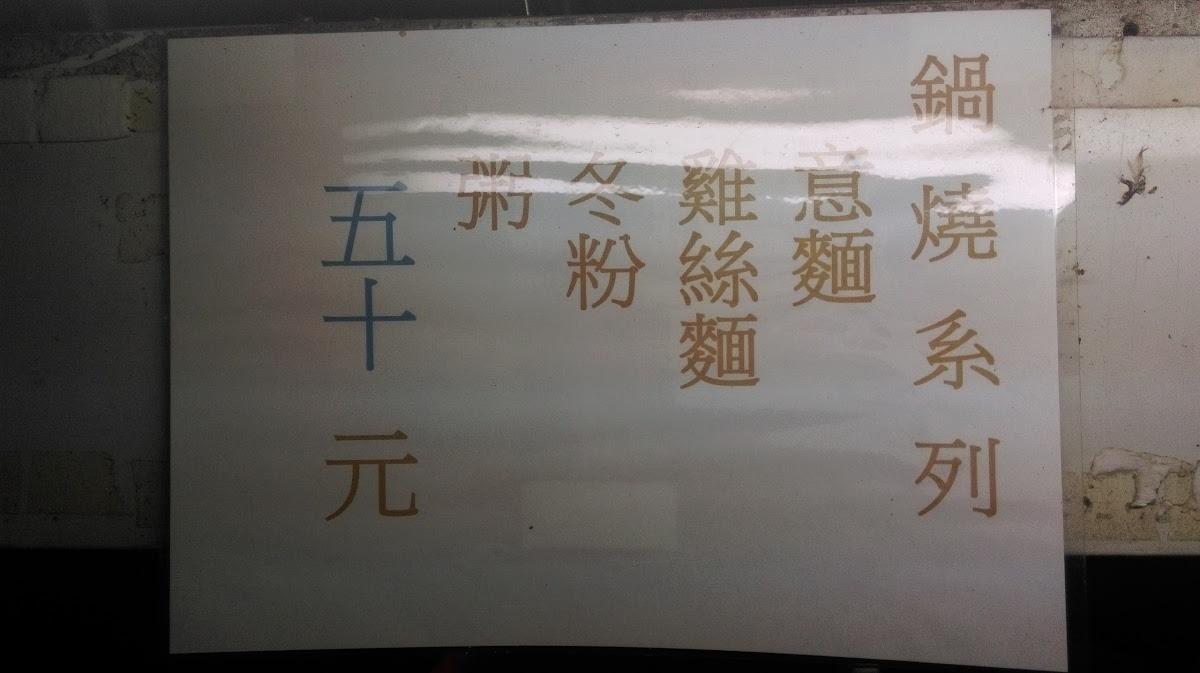 鍋燒系列
意麵
雞絲麵
冬粉
粥
五十元